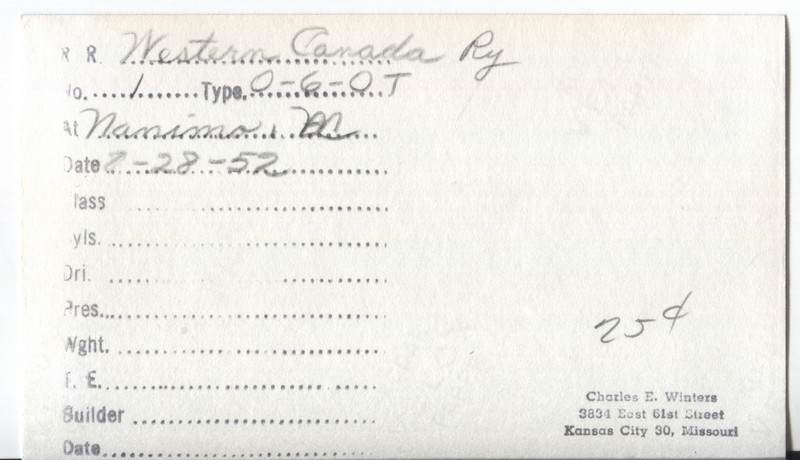 R R. Western Canada Ry
No. 1 Type. 0-6-0T
At Nanimo,
Date 2-28-52
lass
yls.
Dri.
Pres.
Wght.
T. E.
Builder
Date
25¢
Charles E. Winters
3834 East 61st Street
Kansas City 30, Missouri